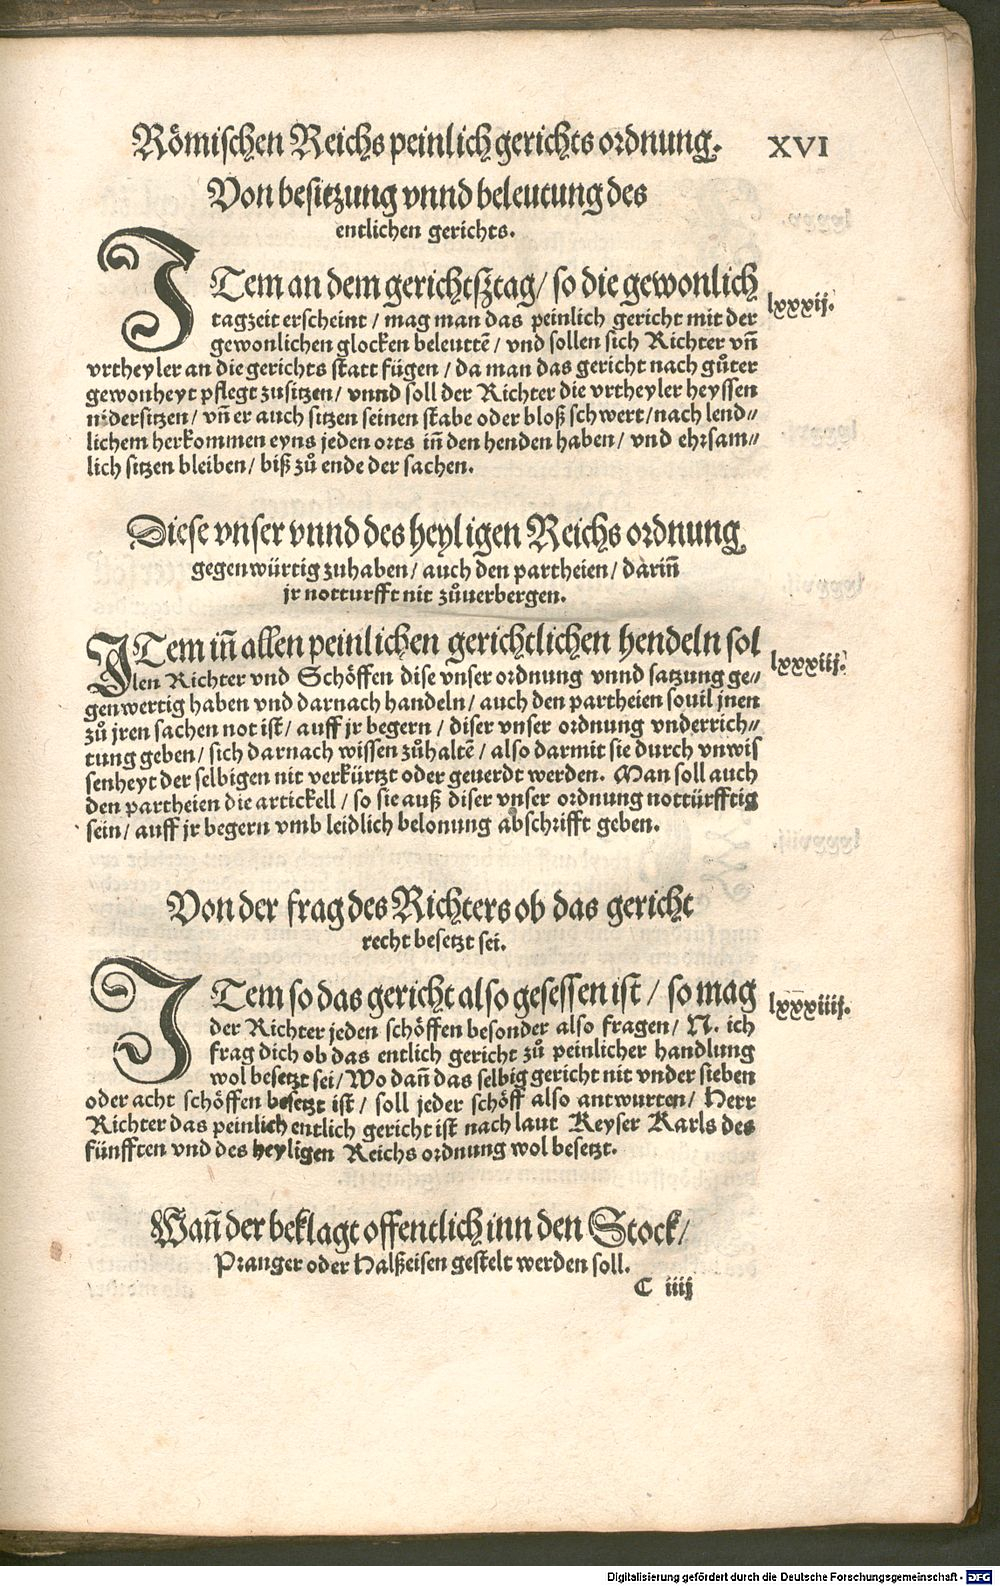 Römischen Reichs peinlich gerichts ordnung. XVI
Von besitzung vnnd beleutung des
entlichen gerichts.
ITem an dem gerichtſztag/ so die gewonlich lxxxij.
tagzeit erscheint / mag man das peinlich gericht mit der
gewonlichen glocken beleuttē / vnd sollen sich Richter vñ
vrtheyler an die gerichts statt fügen / da man das gericht nach gůter
gewonheyt pflegt zusitzen / vnnd soll der Richter die vrtheyler heyssen
nidersitzen / vñ er auch sitzen seinen stabe oder bloß schwert / nach lend⸗
lichem herkommen eyns jeden orts iñ den henden haben / vnd ehrsam⸗
lich sitzen bleiben / biß zů ende der sachen.
Diese vnser vnnd des heyligen Reichs ordnung
gegenwürtig zuhaben / auch den partheien / dariñ
jr notturfft nit zůuerbergen.
ITem iñ allen peinlichen gerichtlichen hendeln sol lxxxiij.
len Richter vnd Schöffen dise vnser ordnung vnnd satzung ge⸗
genwertig haben vnd darnach handeln / auch den partheien souil jnen
zů jren sachen not ist / auff jr begern / diser vnser ordnung vnderrich⸗
tung geben / sich darnach wissen zůhaltē / also darmit sie durch vnwis
senheyt der selbigen nit verkürtzt oder geuerdt werden. Man soll auch
den partheien die artickell / so sie auß diser vnser ordnung nottürfftig
sein / auff jr begern vmb leidlich belonung abschrifft geben.
Von der frag des Richters ob das gericht
recht besetzt sei.
ITem so das gericht also gesessen ist / so mag lxxxiiij.
der Richter jeden schöffen besonder also fragen / N. ich
frag dich ob das entlich gericht zů peinlicher handlung
wol besetzt sei / Wo dañ das selbig gericht nit vnder sieben
oder acht schöffen besetzt ist / soll jeder schöff also antwurten / Herr
Richter das peinlich entlich gericht ist nach laut Keyser Karls des
fünfften vnd des heyligen Reichs ordnung wol besetzt.
Wañ der beklagt offentlich inn den Stock /
Pranger oder Halßeisen gestelt werden soll.
C iiij
Digitalisierung gefördert durch die Deutsche Forschungsgemeinschaft - DFG